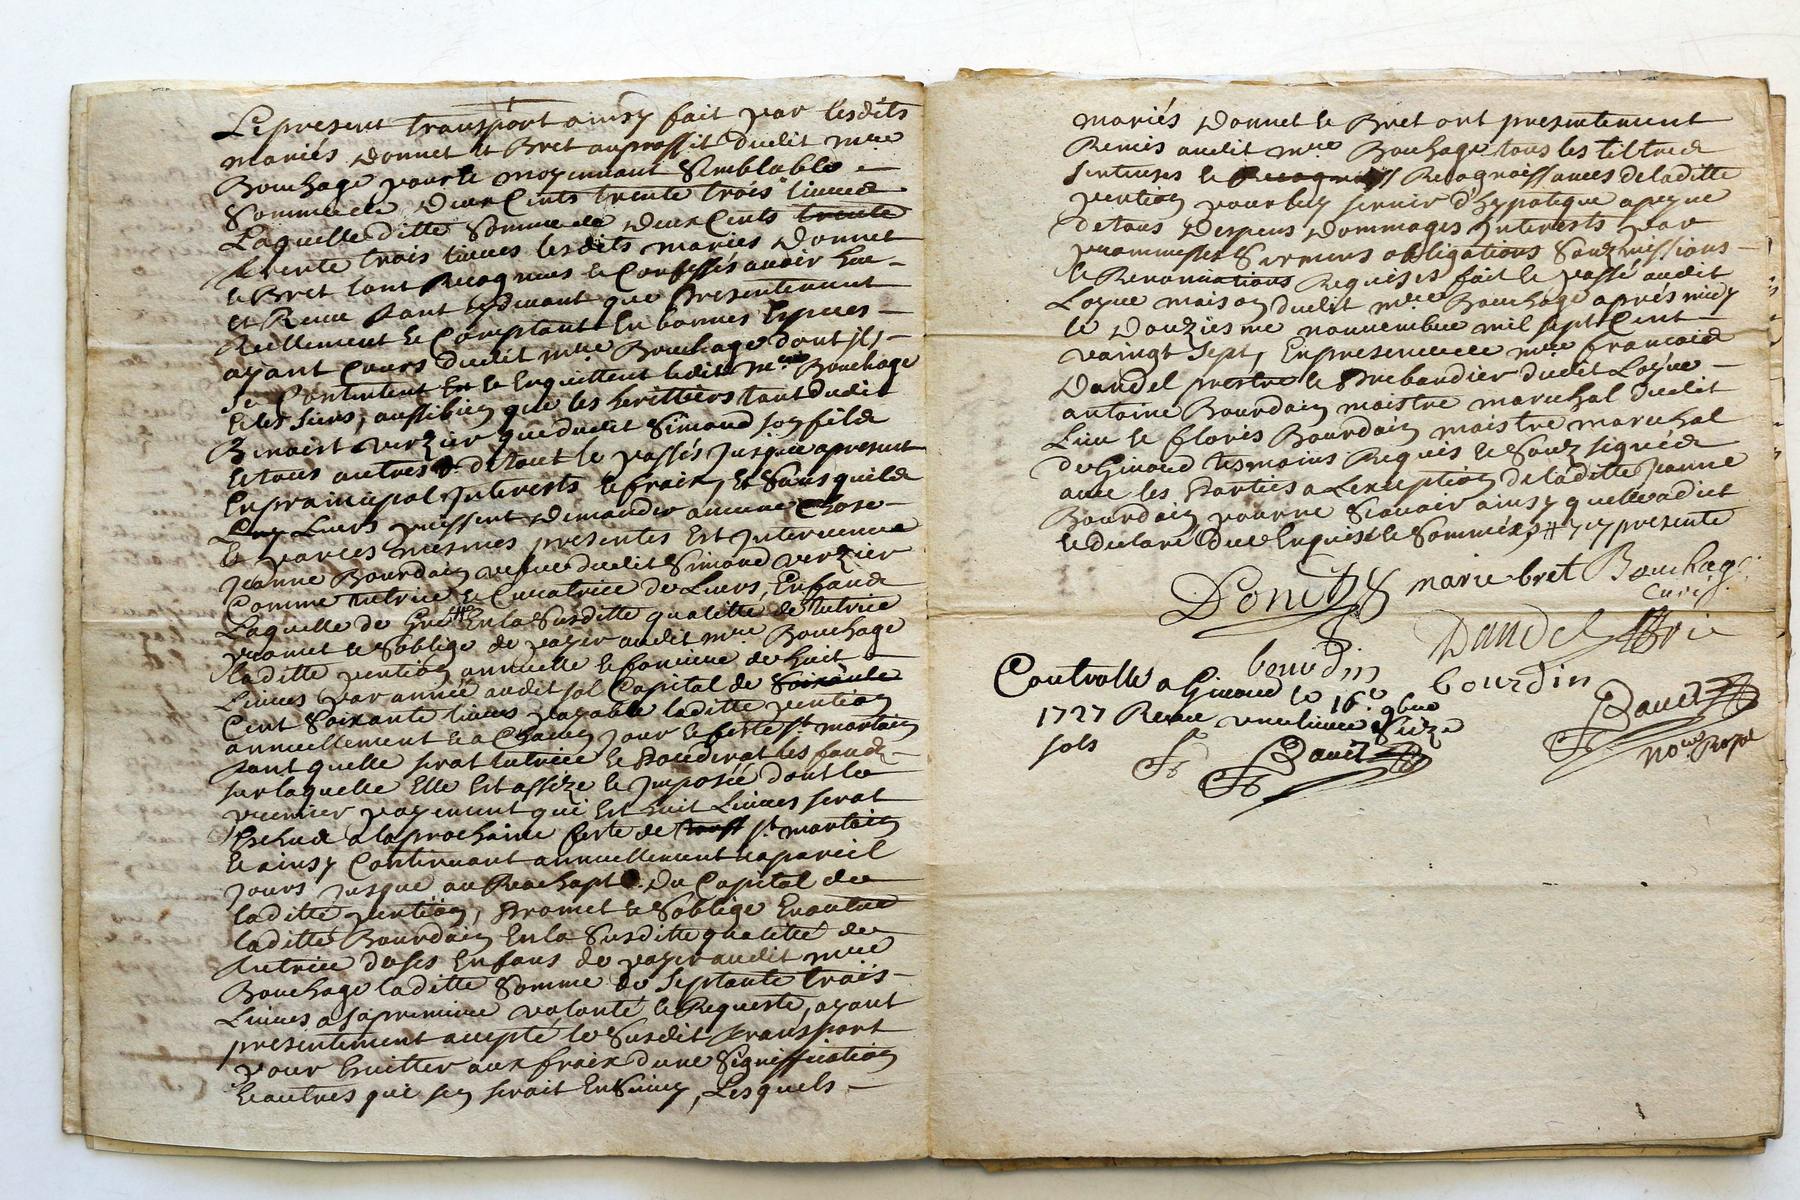 Le present transport ainsy fait par lesdits
mariés Donnet et Bret au proffit dudit mre
Bouchage pour le moyennant semblable
somme de deux cents trente trois livres
Laquelle ditte somme de deux cents trente
trente trois livres lesdits mariés Donnet
et Bret sont Recognus et Confessés avoir heu
et Receu tant cydevant que presentement
Reellement et Comptant En bonnes Especes
ayant Cours dudit mre Bouchage dont ils
se Contentent Et En quittent ledit mre Bouchage
et les siens, aussibien que les heritiers tant dudit
Benoist Verzier que dudit Simond son fils
et tous autres de tout le passés jusque a present
En principal Interests et frais, et sans quils
Luy Leurs puissent demander aucune Chose
Et par ces mesmes presentes Est Intervenue
Jeanne Bourdain vefve dudit Simond Verzier
Comme tutrice et Curatrice de Leurs Enfans
Laquelle de Gré # En la susditte qualitté de tutrice
promet et s'oblige de payer audit mre Bouchage
laditte pention annuelle et fonciere de huit
Livres par année audit sol Capital de soixante
Cent soixante livres payable laditte pention
annuellement et a Chacun jour et feste st martain
tant quelle serat tutrice et Possederat les fonds
sur laquelle Elle Est assize et Imposée dont le
premier payement qui Est huit Livres serat
Escheu a la prochaine feste de st martain
et ainsy Continuant annuellement a pareil
jours jusque au Reachapt du Capital de
laditte pention, Promet et s'oblige En outre
laditte Bourdain En la susditte qualitté de
tutrice de ses Enfans de payer audit mre
Bouchage laditte somme de septante trois
Livres a sa premiere volonté et Requeste, ayant
presentement accepté le susdit transport
pour Eviter aux frais d'une signiffication
et autres que sen serait Ensuivy, Lesquels
mariés Donnet et Bret ont presentement
Remis audit mre Bouchage tous les tiltres
sentences et Recognoissances de laditte
pention pour luy servir d'hypoteque a peyne
de tous Despens Dommages Interests par
promesses sermens obligations soubmissions
et Renonciations Requises fait et passé audit
Loyne maison dudit mre Bouchage après midy
le Douziesme nouvembre mil sept Cent
vaingt sept, En presence de mre francois
Dandel prestre et prebandier dudit Loyne
antoine Bourdain maistre marechal dudit
Lieu et floris Bourdain maistre marechal
de Givord tesmoins Requis et soubsignés
avec les Parties a L'exception de laditte Jeanne
Bourdain pour ne scavoir ainsy quelle a dict
et declaré Duement Enquise et sommée, # icy presente
Donet marie bret Bouchage
Curé
Dandel
bourdin bourdin
Controllé a Givord le 16e 9bre
1727 Receu une livre seize
sols